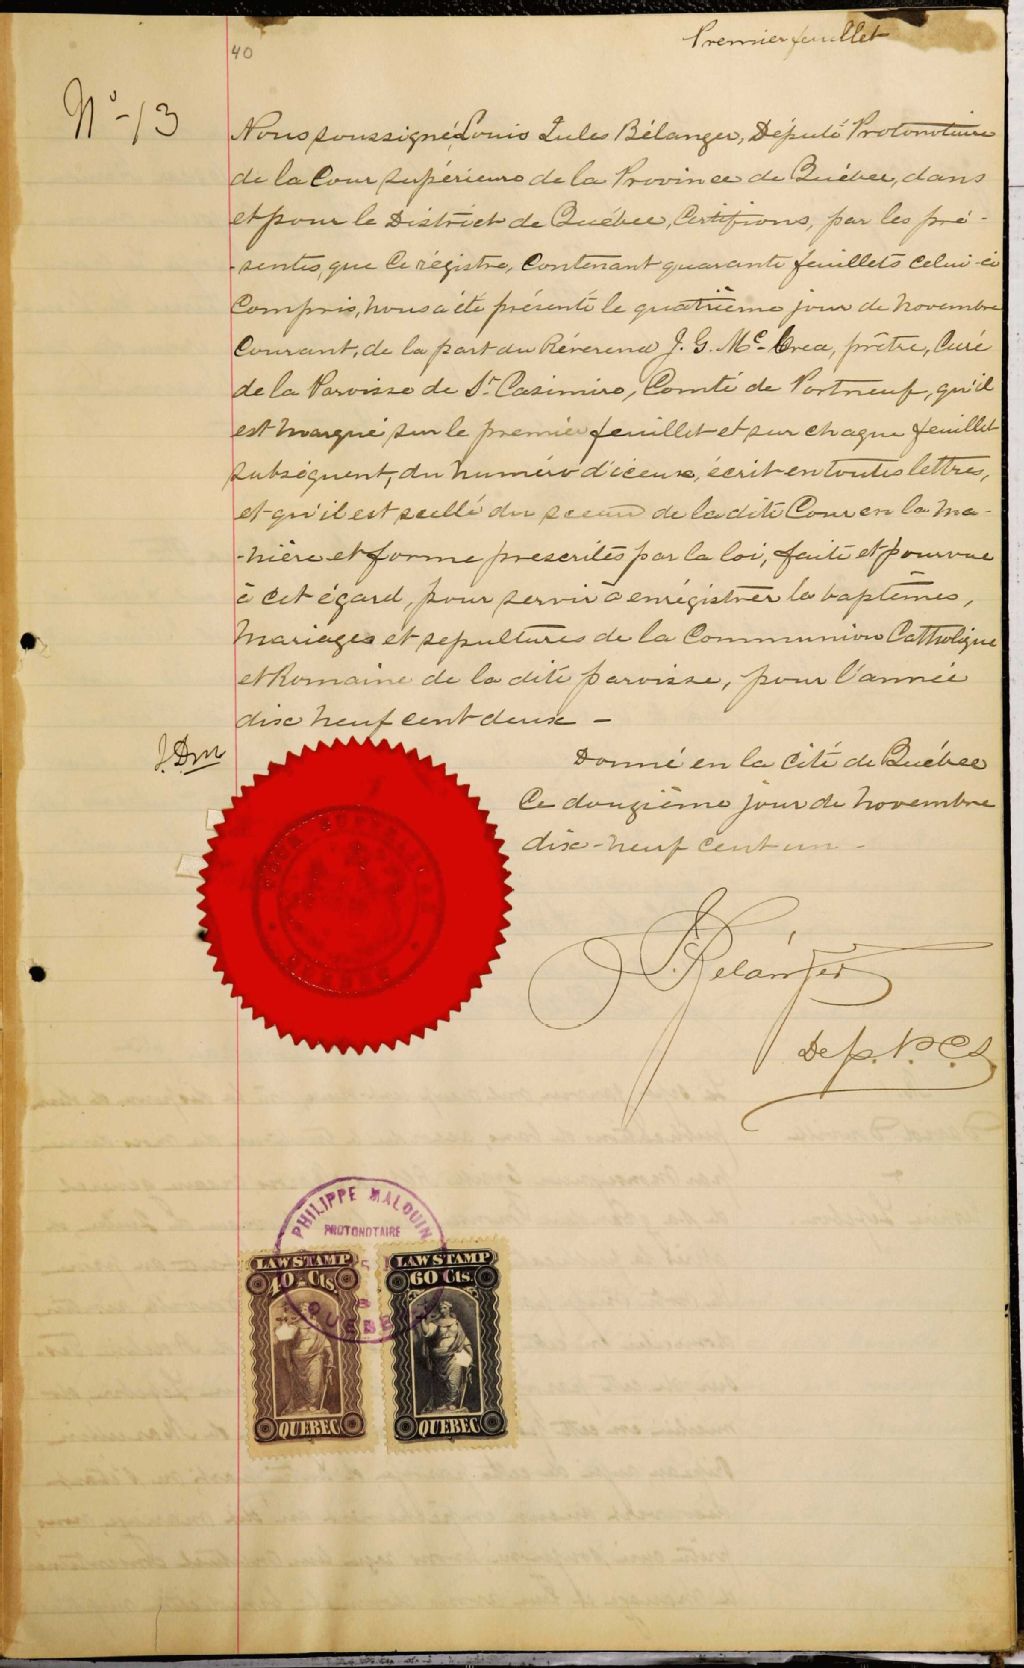 40
Premier feuillet
No-13
Nous soussigné, Louis Jules Bélanger, Député Protonotaire
de la Cour supérieure de la Province de Québec, dans
et pour le District de Québec, Certifions, par les pré-
-sentes, que Ce régistre, Contenant quarante feuillets Celui-ci
Compris, nous a été présenté le quatrième jour de Novembre
Courant, de la part du Révérend J. G. McCrea, prêtre, Curé
de la Paroisse de St. Casimire, Comté de Portneuf, qu'il
est marqué sur le premier feuillet et sur chaque feuillet
subséquent, du numéro d'iceux, écrit en toutes lettres,
et qu'il est scellé du sceau de la dite Cour en la ma-
-nière et forme prescrites par la loi, faite et pourvue
à cet égard, pour servir à enrégistrer les baptêmes,
Mariages et sepultures de la Communion Catholique
et Romaine de la dite paroisse, pour l'année
dix neuf cent deux -
Donné en la Cité de Québec
Ce douzième jour de Novembre
dix-neuf cent un -
COUR SUPÉRIEURE
QUÉBEC
Bélanger
Dep. P.C.S
PHILIPPE MALOUIN
PROTONOTAIRE
QUEBEC
LAW STAMP
40 Cts.
QUEBEC
LAW STAMP
60 Cts.
QUEBEC